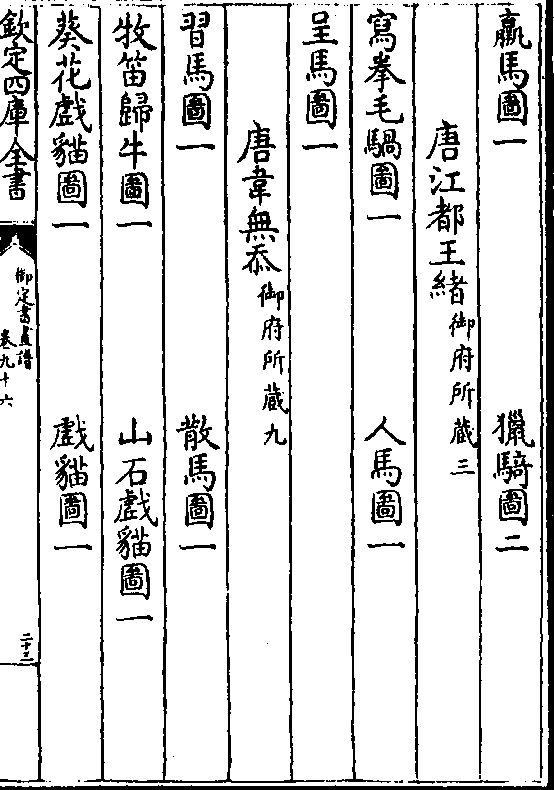 羸馬圖一　獵騎圖二
唐江都王緒御府所藏三
寫拳毛騧圖一　人馬圖一
呈馬圖一
唐韋無忝御府所藏九
習馬圖一　散馬圖一
牧笛歸牛圖一　山石戲貓圖一
葵花戲貓圖一　戲貓圖一
欽定四庫全書　御定書畫譜　卷九十六